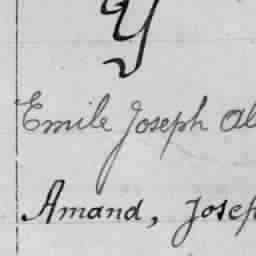 y
Emile Joseph Al
Amand, Josep